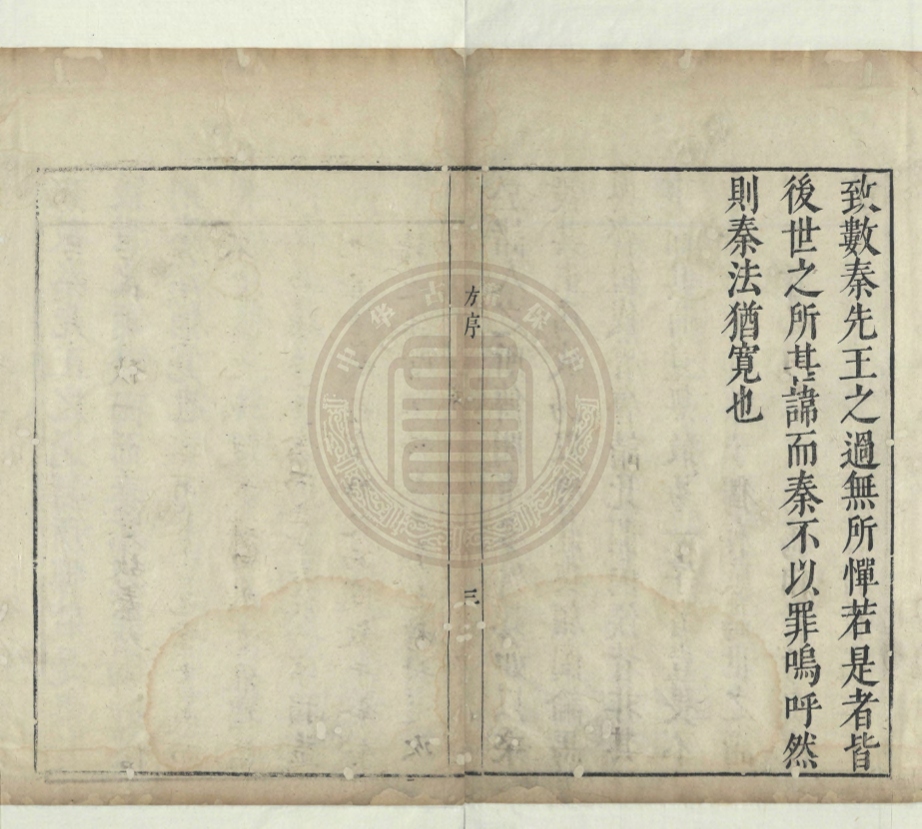 致數秦先王之過無所憚若是者皆
後世之所甚諱而秦不以罪嗚呼然
則秦法猶寬也
方序
三